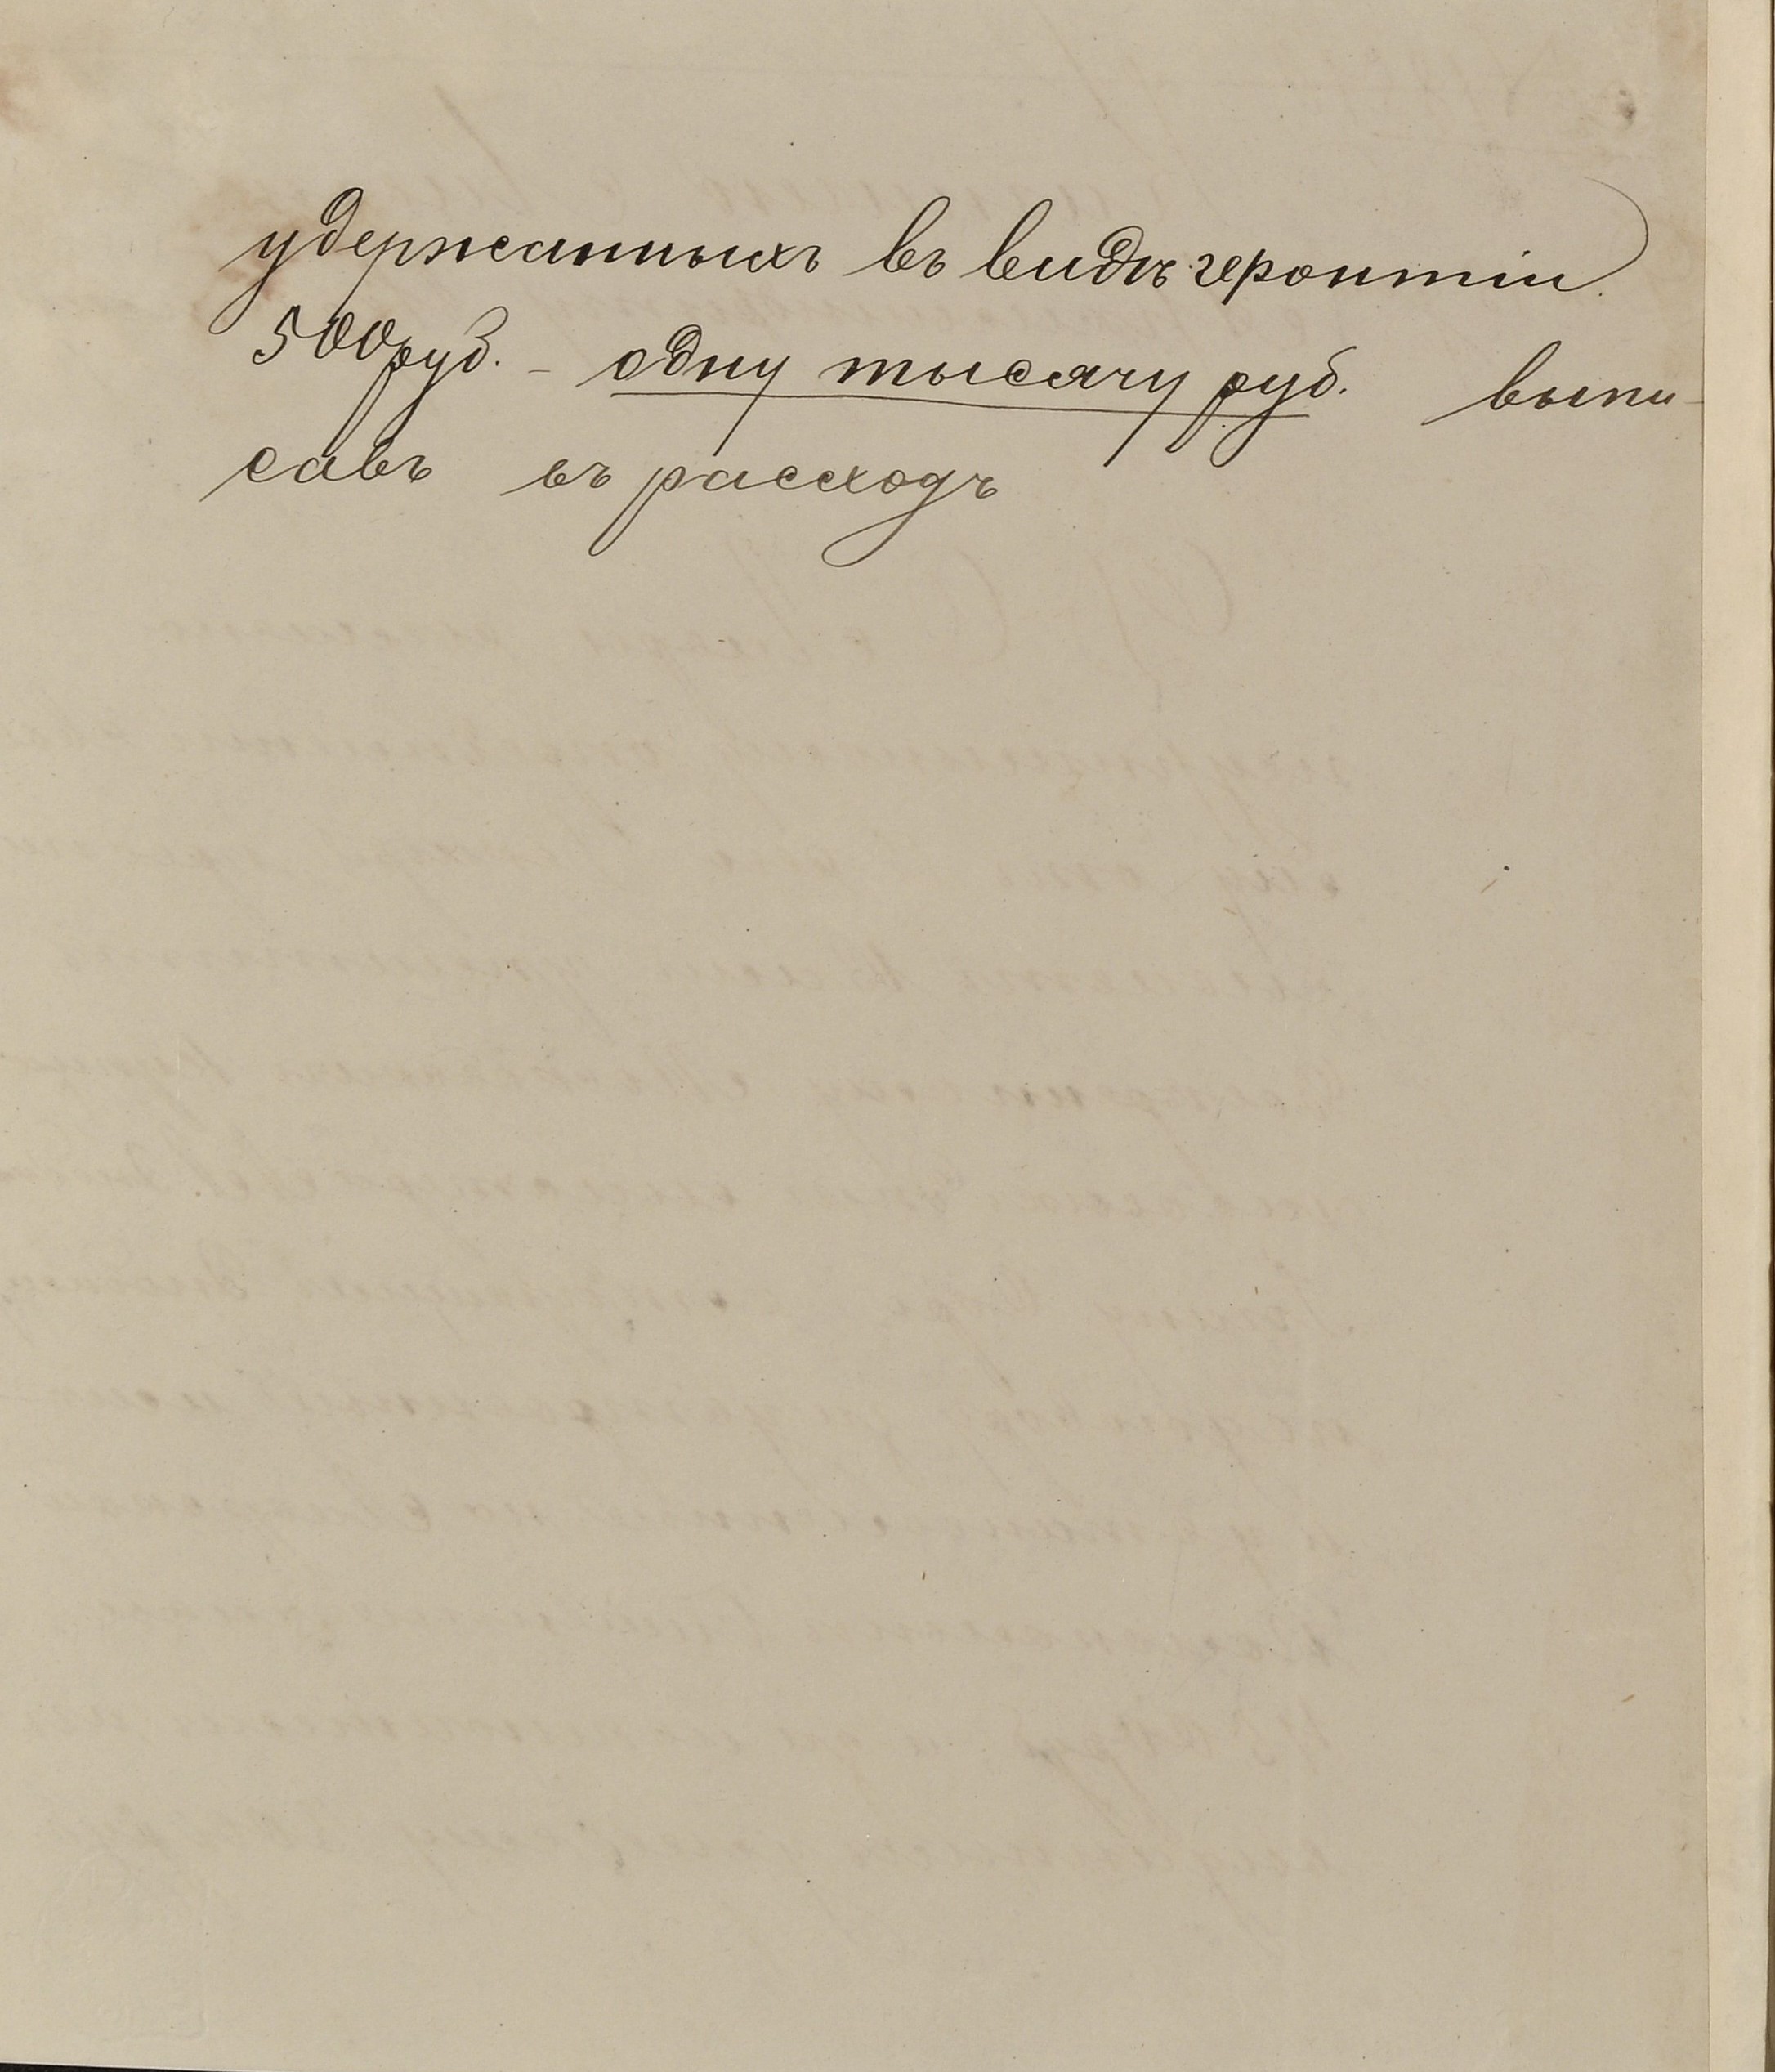 удержанныхъ въ видѣ геронтіи
500 руб. - одну тысячу руб. выпи-
савъ въ расходъ